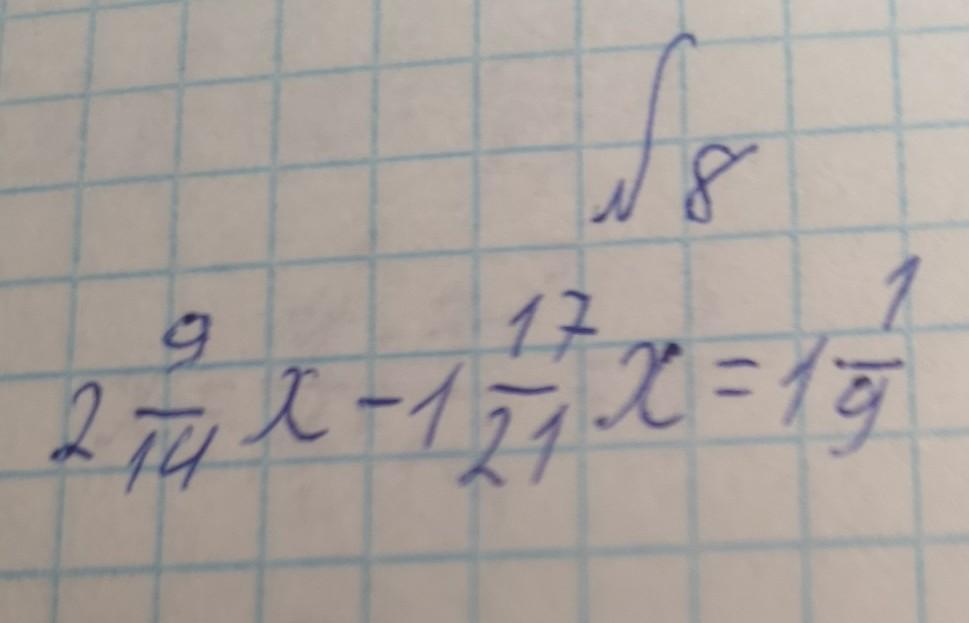 № 8
2 9/14 x - 1 17/21 x = 1 1/9